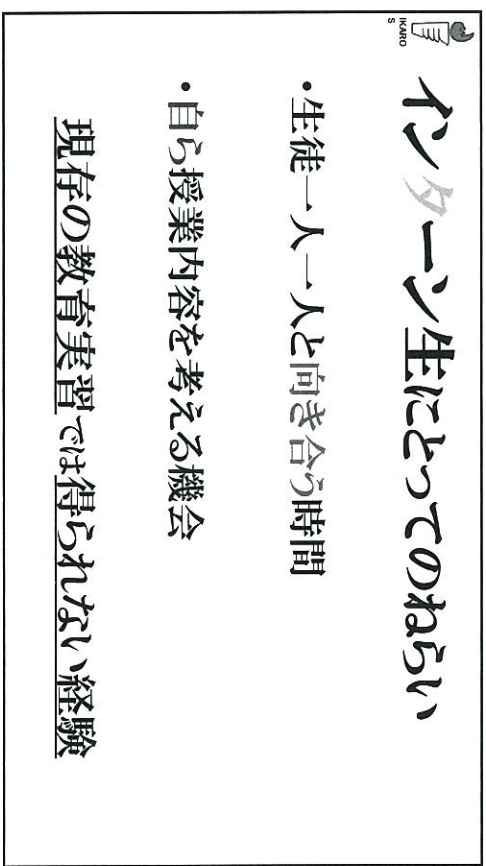 IKARO
S
インターン生にとってのねらい
・生徒一人一人と向き合う時間
・自ら授業内容を考える機会
現存の教育実習では得られない経験